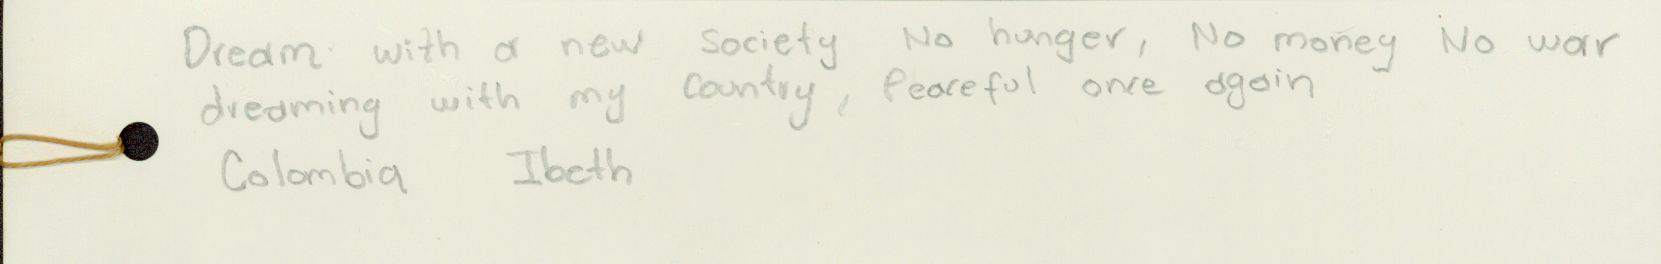 Dream with a new society No hunger, No money No war
dreaming with my country, Peaceful once again
Colombia Ibeth